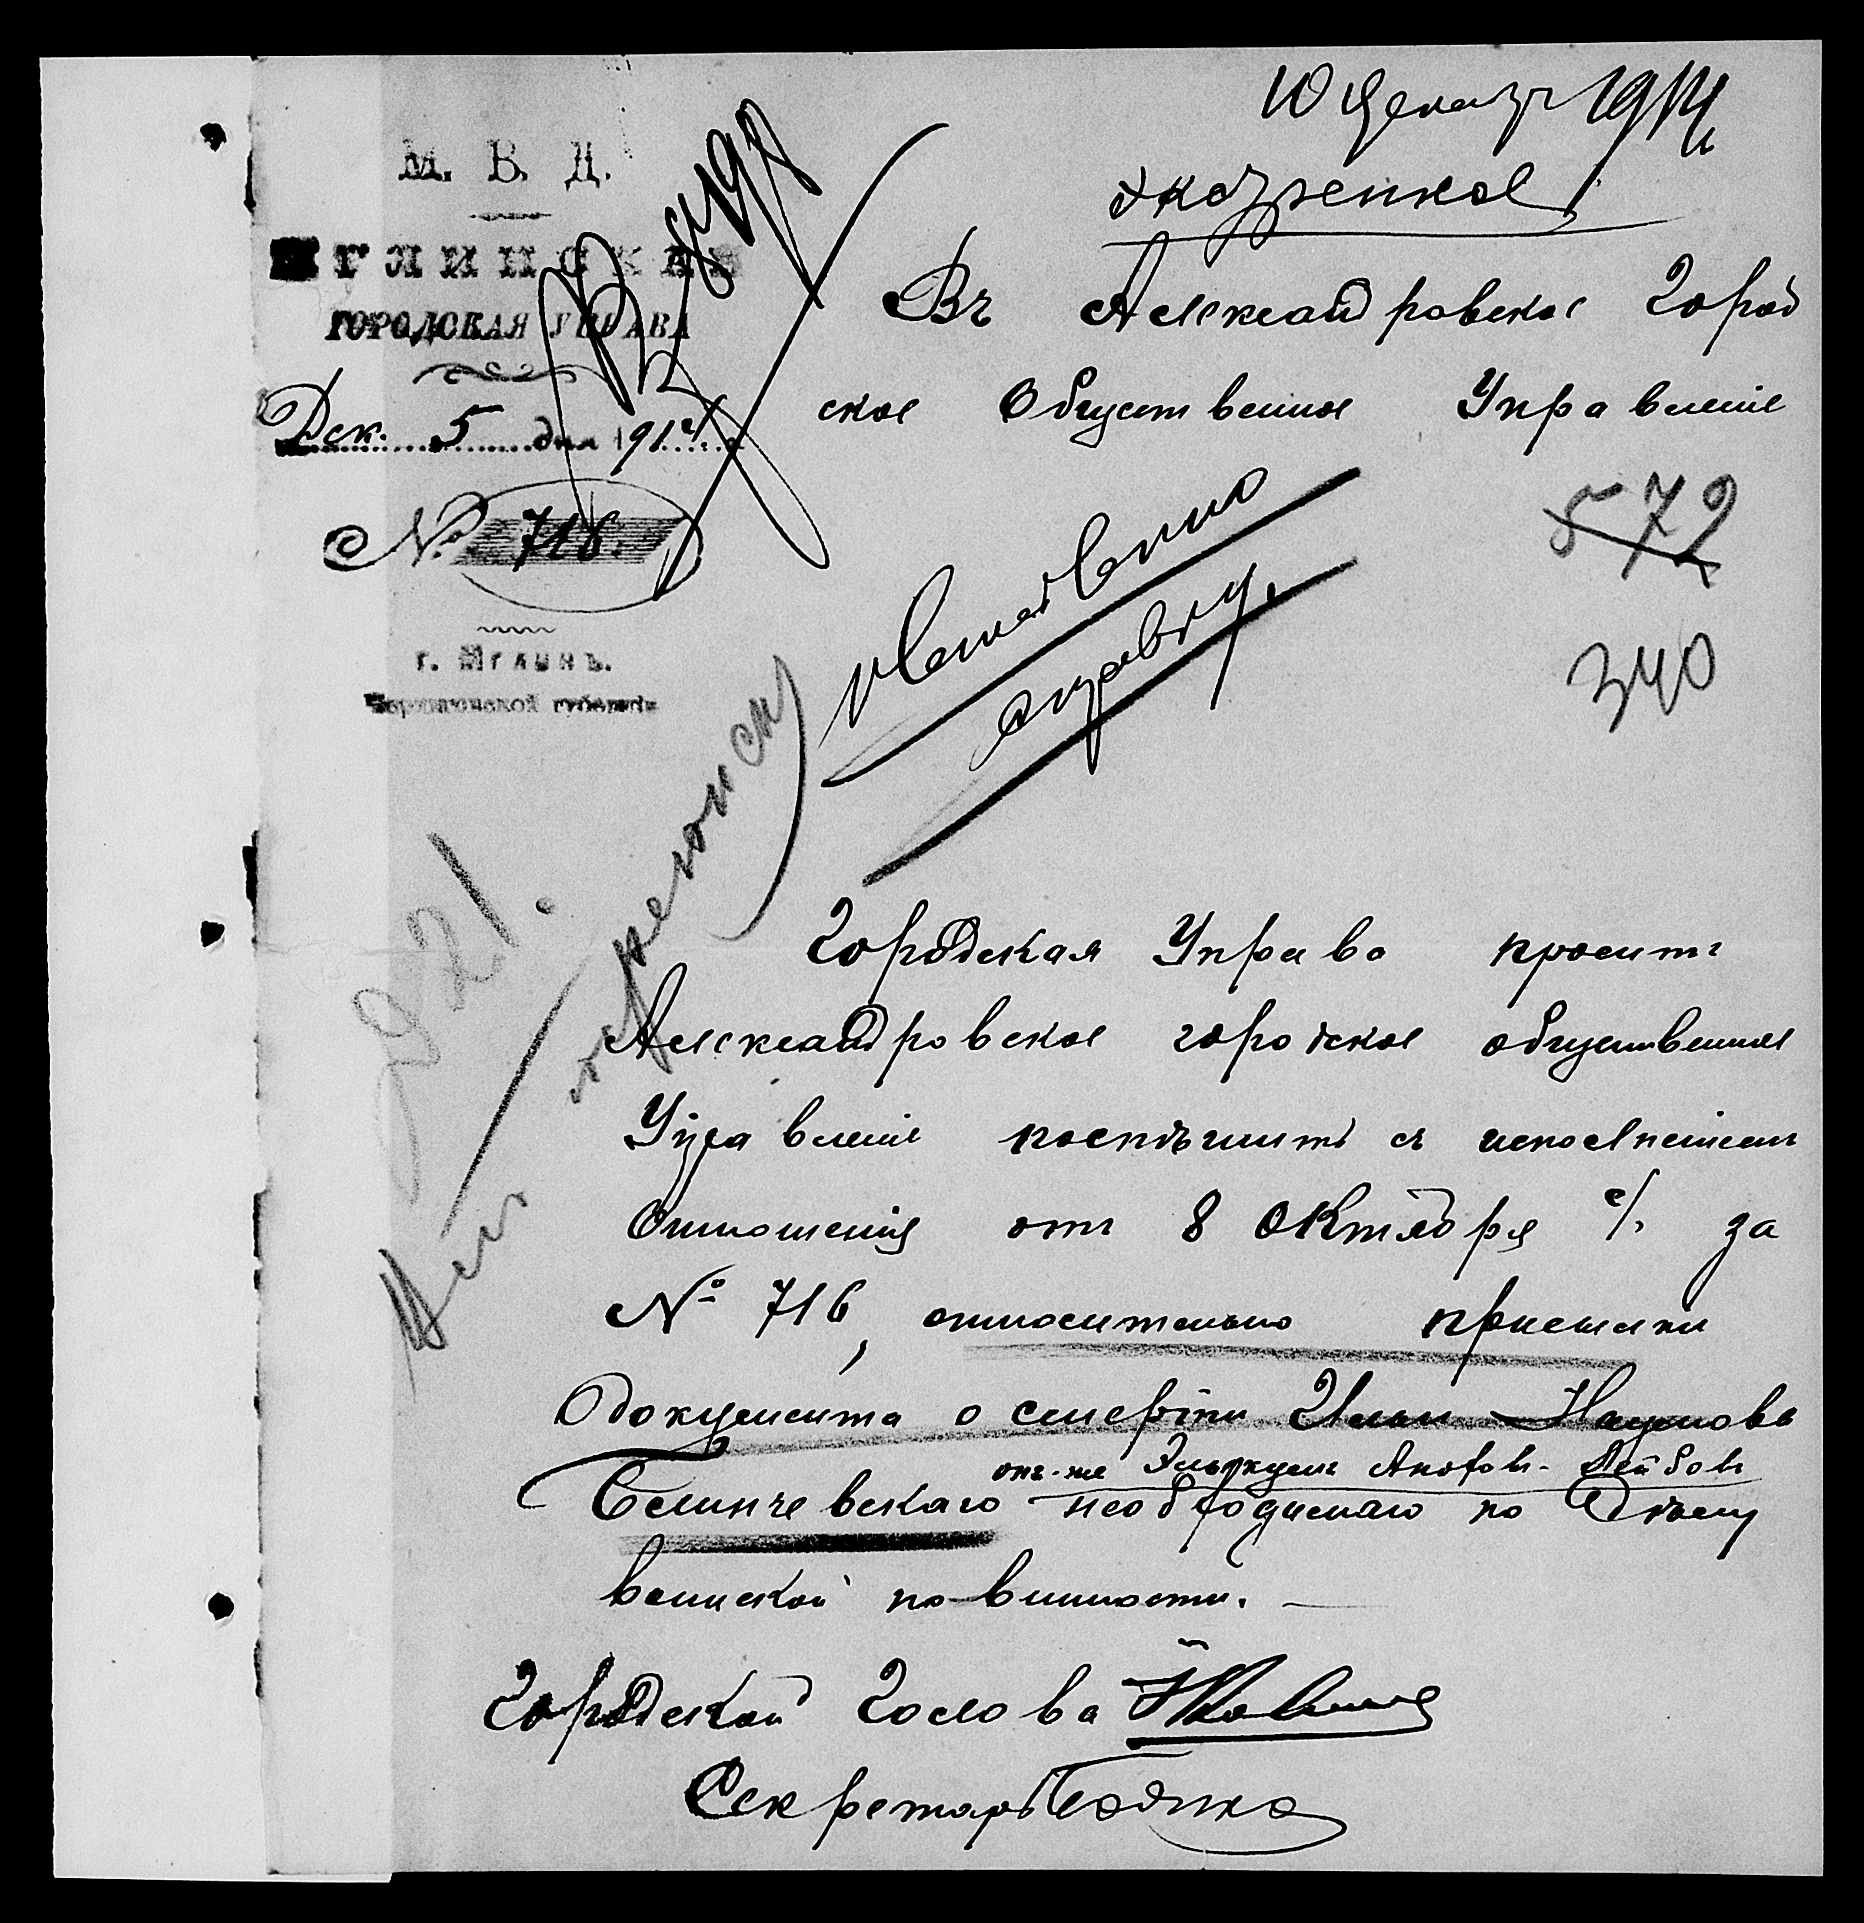 10 Декабр 1914
М. В. Д.
МГЛИНСКАЯ
ГОРОДСКАЯ УПРАВА
Дек. 5 дня 1914 г.
№ 716.
г. Мглинъ.
Черниговской губерніи
Въ Александровское Город
ское Общественное Управленіе
572
340
921.
Городская Управа проситъ
Александровское городское общественное
Управленіе поспѣшить съ исполненіемъ
отношенія отъ 8 Октября с/г. за
№ 716, относительно присылки
документа о смерти Ильи Наумова
онъ-же Эльякумъ Лейбовъ
Белинчевскаго необходимаго по дѣлу
воинской повинности.
Городской Голова
Секретарь